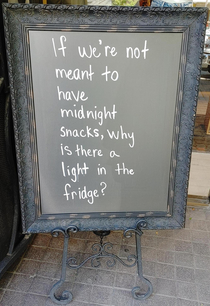 If we're not
meant to
have
midnight
snacks, why
is there a
light in the
fridge?